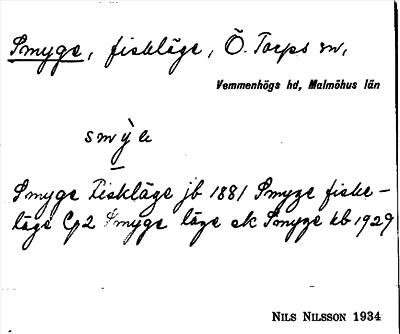 Smyge, fiskläge, Ö. Torps sn,
Vemmenhögs hd, Malmöhus län
smỳe
Smyge Fiskläge jb 1881 Smyge fiske-
läge Gp2 Smyge läge ek Smyge kb 1929
NILS NILSSON 1934